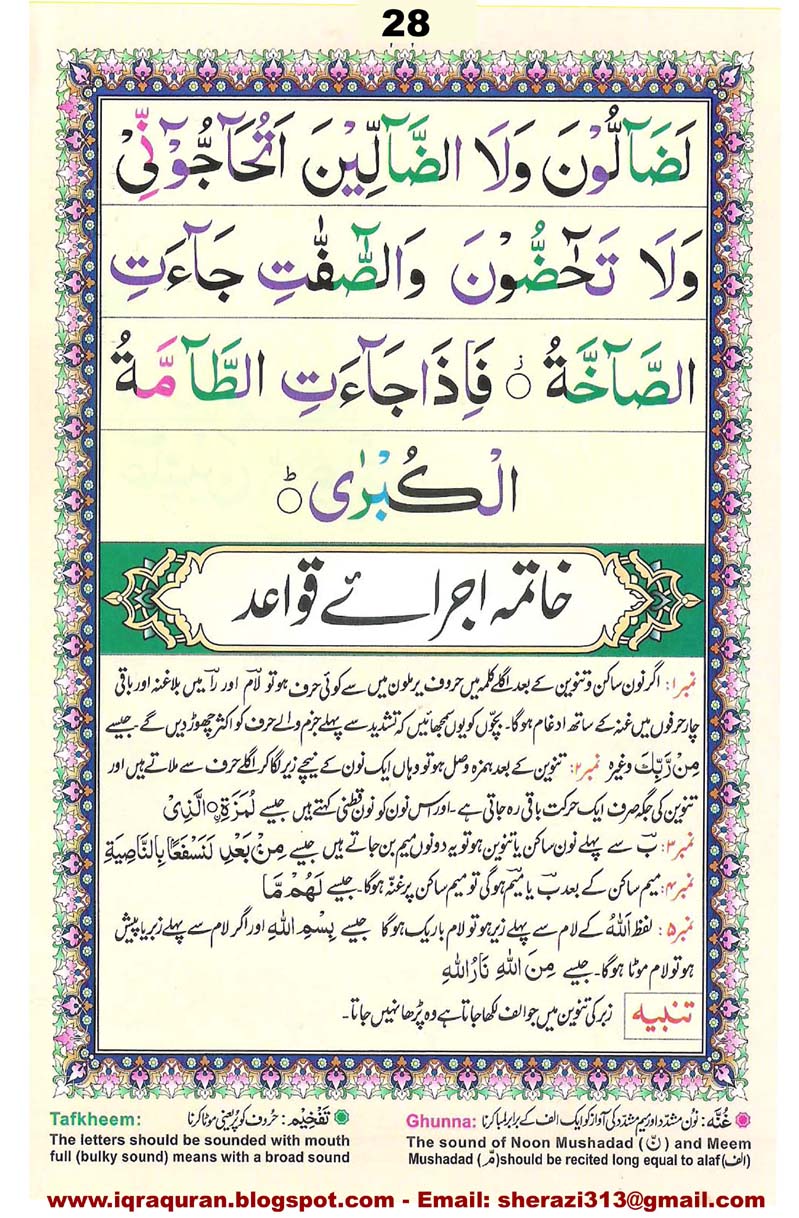 28
لَضَآلُّوْنَ وَلَا الضَّآلِّيْنَ اَتُحَآجُّوْٓنِّيْ
وَلَا تَحٰٓضُّوْنَ وَالصّٰٓفّٰتِ جَآءَتِ
الصَّآخَّةُ ۝ؗ فَاِذَا جَآءَتِ الطَّآمَّةُ
الْكُبْرٰى ۝ؕ
خاتمہ اجرائے قواعد
نمبر۱: اگر نون ساکن و تنوین کے بعد اگلے کلمہ میں حروف یرملون میں سے کوئی حرف ہو تو لام اور را میں بلاغنہ اور باقی
چار حرفوں میں غنہ کے ساتھ ادغام ہوگا۔ بچّوں کو یوں سمجھائیں کہ تشدید سے پہلے جزم والے حرف کو اکثر چھوڑ دیں گے۔ جیسے
مِنْ رَّبِّكَ وغیرہ نمبر۲: تنوین کے بعد ہمزہ وصل ہو تو وہاں ایک نون کے نیچے زیر لگا کر اگلے حرف سے ملاتے ہیں اور
تنوین کی جگہ صرف ایک حرکت باقی رہ جاتی ہے۔ اور اس نون کو نون قطنی کہتے ہیں جیسے لُمَزَةِ ۝ۙ نِ الَّذِيْ
نمبر۳: ب سے پہلے نون ساکن یا تنوین ہو تو یہ دونوں میم بن جاتے ہیں جیسے مِنْۢ بَعْدِ لَنَسْفَعًۢا بِالنَّاصِيَةِ
نمبر۴: میم ساکن کے بعد ب یا میم ہوگی تو میم ساکن پر غنّہ ہوگا۔ جیسے لَهُمْ مَّا
نمبر۵: لفظ اَللهُ کے لام سے پہلے زیر ہو تو لام باریک ہوگا جیسے بِسْمِ اللهِ اور اگر لام سے پہلے زبر یا پیش
ہو تو لام موٹا ہوگا۔ جیسے مِنَ اللهِ نَارُ اللهِ
تنبیہ زبر کی تنوین میں جو الف لکھا جاتا ہے وہ پڑھا نہیں جاتا۔
غُنَّه: نون مشدّد اور میم مشدّد کی آواز کو ایک الف کے برابر لمبا کرنا Ghunna:
The sound of Noon Mushadad (نّ) and Meem
Mushadad (مّ) should be recited long equal to alaf (الف)
تَفْخِيْم: حروف کو پُر یعنی موٹا کرنا Tafkheem:
The letters should be sounded with mouth
full (bulky sound) means with a broad sound
www.iqraquran.blogspot.com - Email: sherazi313@gmail.com